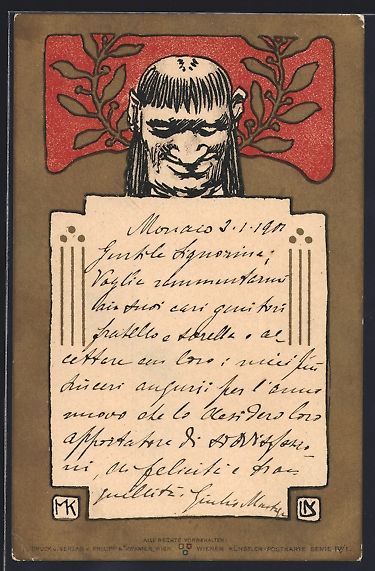 Monaco 2-1-1901
Gentile Signorina,
Voglia rammentarmi
ai suoi cari genitori
fratello e sorella e ac
cettare con loro i miei più
sinceri augurii per l'anno
nuovo che lo desidero loro
apportatore di
ni, di felicità e tran
quillità. Giulio
MK
ALLE RECHTE VORBEHALTEN
DRUCK u. VERLAG v. PHILIPP & KRAMER, WIEN WIENER KÜNSTLER-POSTKARTE SERIE IV/1.